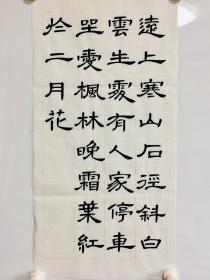 遠上寒山石徑斜白
雲生處有人家停車
坐愛楓林晚霜葉紅
於二月花